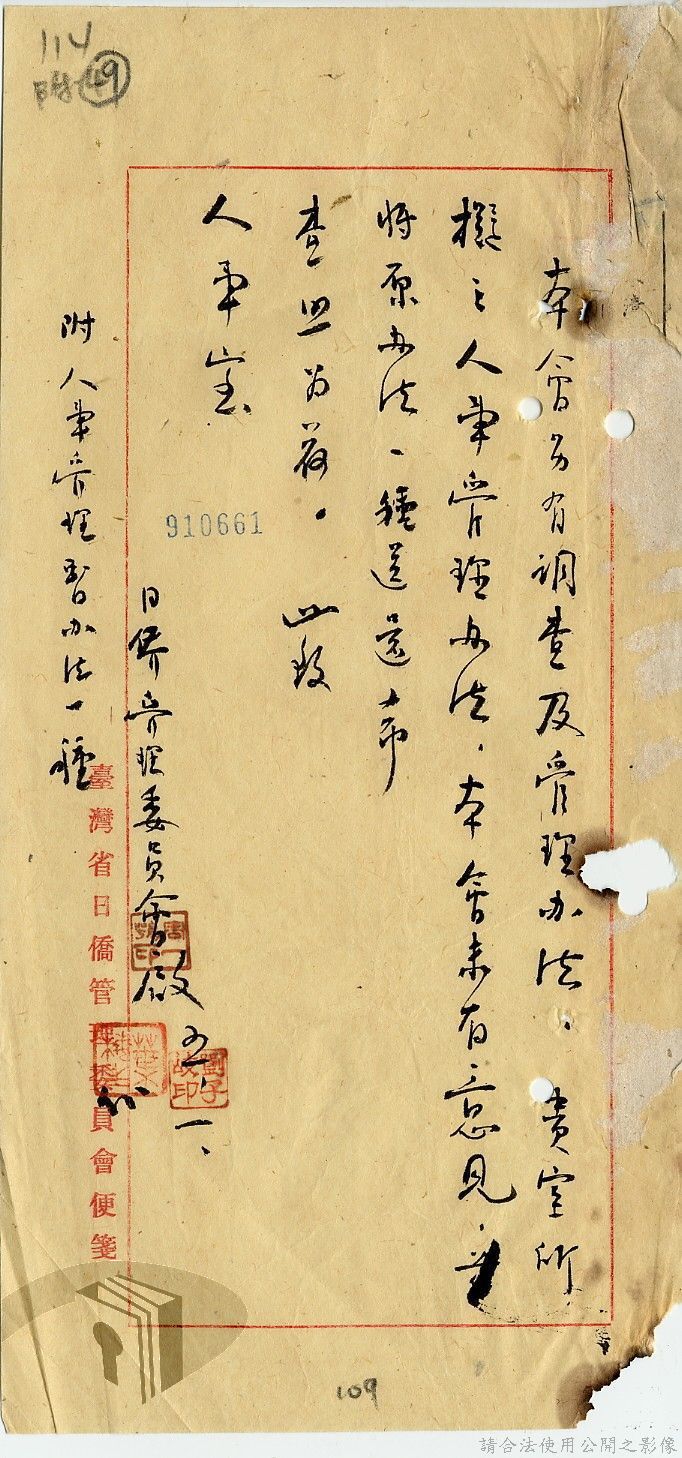 114
附49
本會另有調查及管理办法、貴室所
擬之人事管理办法、本會未有意見、
將原办法一種送還希
查照为荷。此致
人事室
910661
日僑管理委員會啟 五、一、
附人事管理暫办法一種
臺灣省日僑管理委員會便箋
109
請合法使用公開之影像